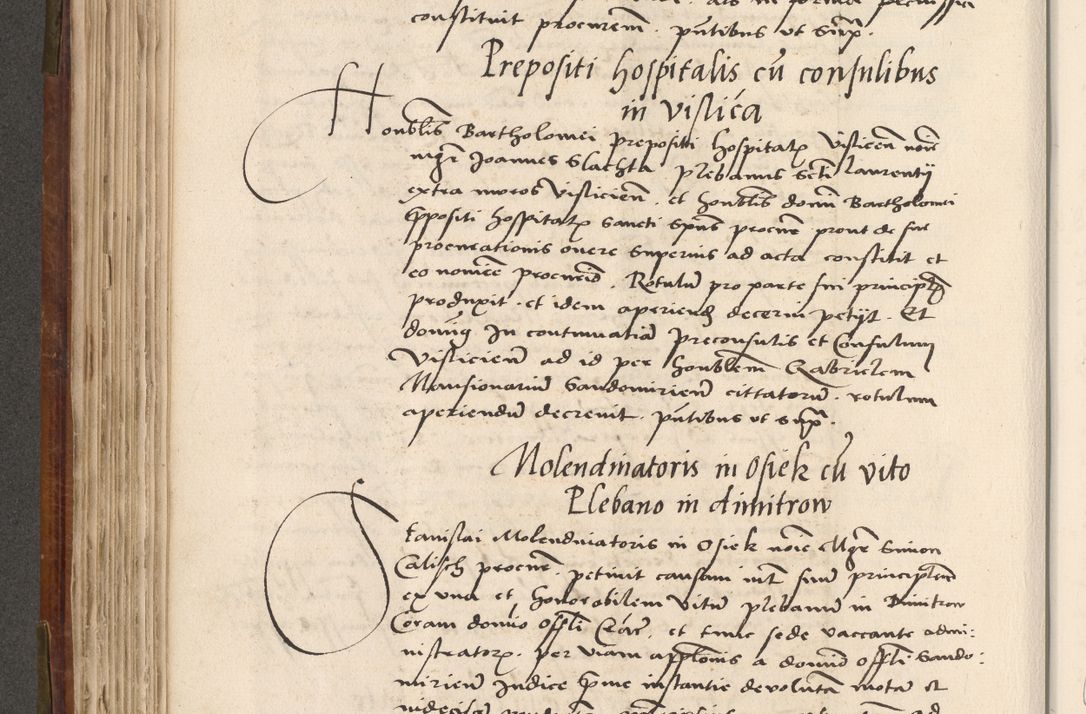 constituit procurem̄. pn̄tibus vt supr̄.
Prepositi hospitalis cū consulibus
in vislica
Honoblis Bartholomei prepositi hospitalꝫ Vislicen̄ noīe
mgr̄ Joannes Slachta plebanus scti Laurentij
extra muros Vislicien̄. et honoblis domī Bartholomei
p̄positi hospitalꝫ sancti spūs procur̄ prout de sue
procurationis onere superius ad acta constitit et
eo nomīe procurīd. Rotulū pro parte sui principlꝫ
produxit. et idem aperiendꝫ decerni petijt. Et
domīnꝫ In contumatiā preconsulis et Consulum
Vislicien̄ ad id per honoblem Gabrielem
Mansionariū Sandomirien̄ cittatorū. rotulum
aperiendū decreuit. pn̄tibus vt supr̄.
Molendinatoris in Osiek cū vito
Plebano in dimitrow
Stanislai Molendinatoris in Osiek noīe Mgr̄ Simon
Calisch procur̄. petiuit causam int̄ suū principlem
ex vna et honorabilem Vitū plebanū in Dimitrow
Coram domīo Offli Crac̄. et tunc sede vaccante admi:
nistratorꝫ. per viam applonis a domīo Offli Sando:
mirien̄ Iudice p̄me instantie deuolutā motā et